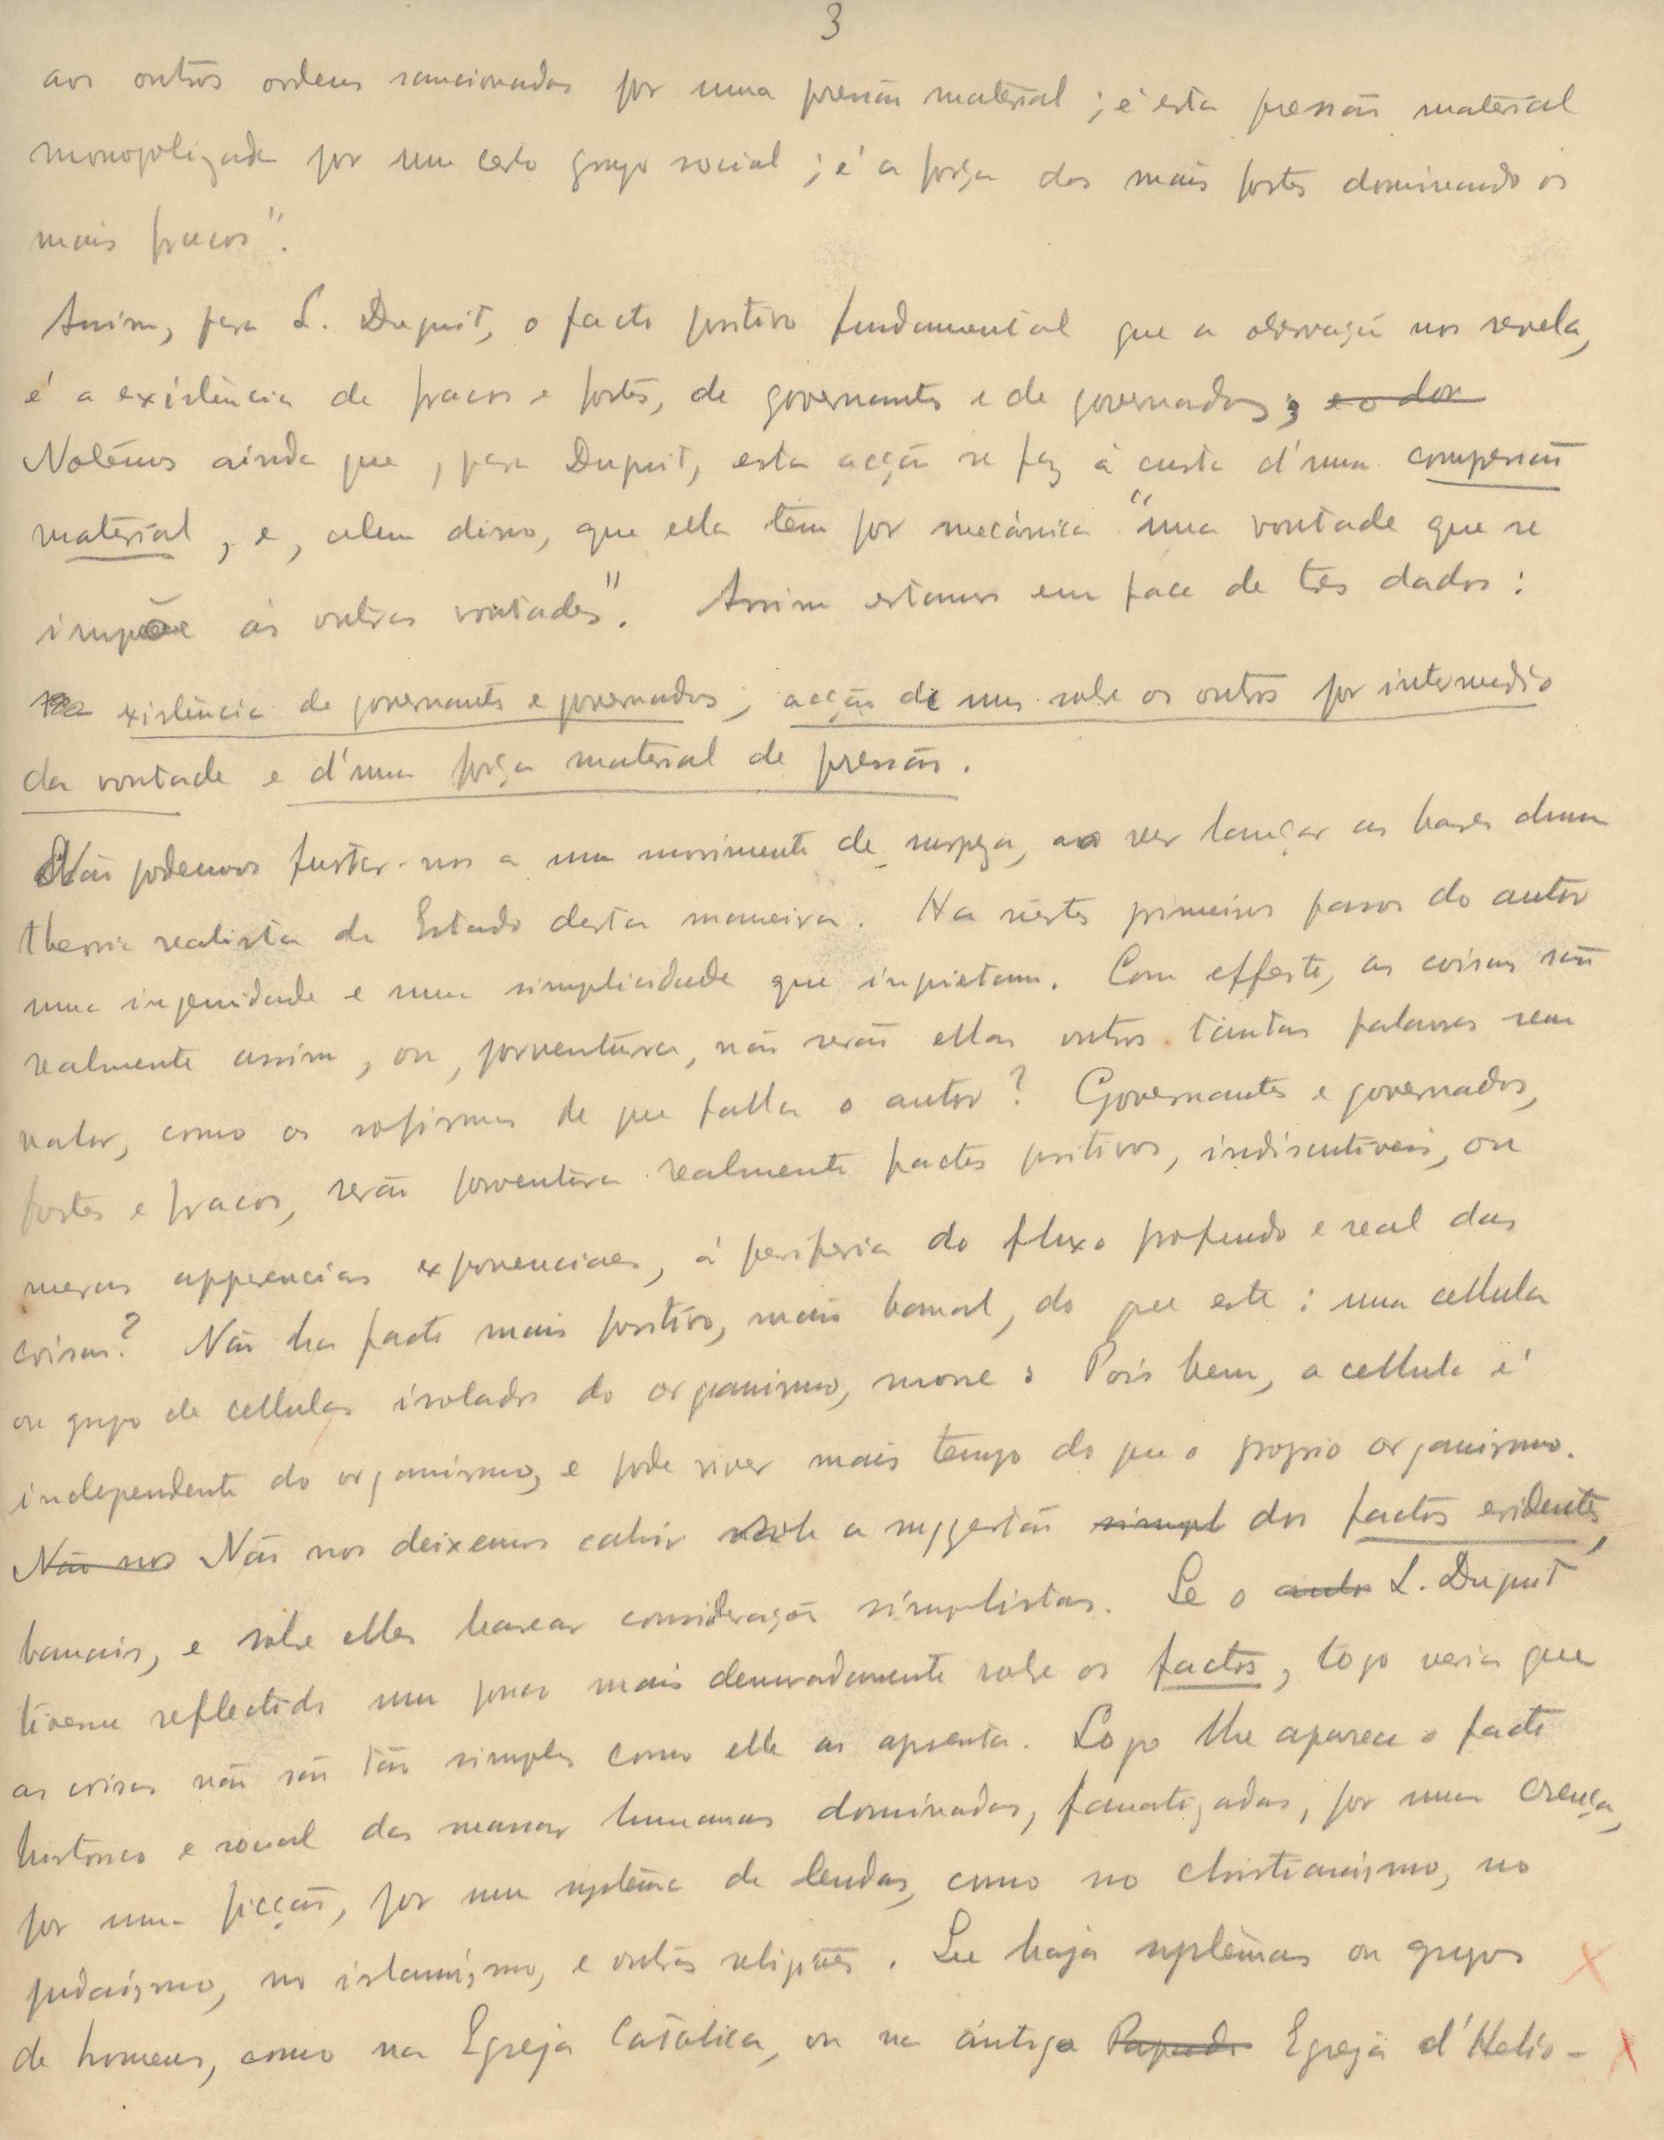 3
aos outros ordens sancionadas por uma pressão material; é esta pressão material
monopolizada por um certo grupo social; é a força dos mais fortes dominando os
mais fracos".
Assim, para L. Duguit, o facto positivo fundamental que a observação nos revela,
é a existência de fracos e fortes, de governantes e de governados; e o dos
Notêmos ainda que, para Duguit, esta acção se faz à custa d'uma compressão
material, e, alem disso, que ella têm por mecánica "uma vontade que se
impõe ás outras vontades". Assim estamos em face de tres dados:
existência de governantes e governados; acção de uns sobre os outros por intermedio
da vontade e d'uma força material de pressão.
Não podemos furtar-nos a um movimento de surpeza, ao ver lançar as bases duma
theoria realista do Estado desta maneira. Ha nestes primeiros passos do autor
uma ingenuidade e uma simplicidade que inquietam. Com effeito, as coisas são
realmente assim, ou, porventura, não serão ellas outros tantas palavras sem
valor, como os sofismas de que falla o autor? Governantes e governados,
fortes e fracos, serão porventura realmente factos positivos, indiscutiveis, ou
meras apparencias exponenciaes, á periferia do fluxo profundo e real das
coisas? Não ha facto mais positivo, mais banal, do que este: uma cellula
ou grupo de cellulas isolados do organismo, morre: Pois bem, a cellula é
independente do organismo, e pode viver mais tempo do que o proprio organismo.
Não nos Não nos deixemos cahir sob a suggestão simpl dos factos evidentes,
banais, e sobre elles basear considerações simplistas. Se o autor L. Duguit
tivesse reflectido um pouco mais demoradamente sobre os factos, logo veria que
as coisas não são tão simples como elle as apresenta. Logo lhe aparece o facto
historico e social das massas humanas dominadas, fanatizadas, por uma crença,
por uma ficção, por um systêma de lendas, como no christianismo, no
judaismo, no islamismo, e outras religiões. Que haja systêmas ou grupos
de homens, como na Egreja Catolica, ou na ántiga Egreja d'Helio-